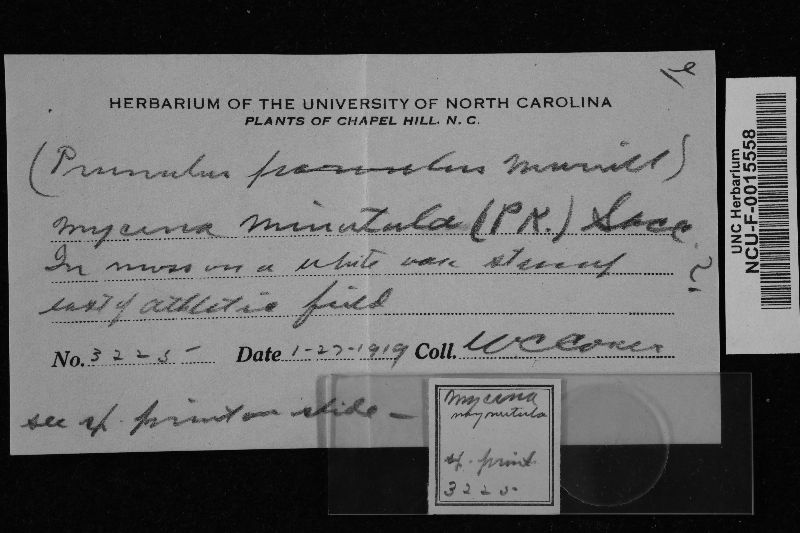 HERBARIUM OF THE UNIVERSITY OF NORTH CAROLINA
PLANTS OF CHAPEL HILL, N. C.
(Prunulus Murrill)
Mycena minutula (PK.) Sacc. ?
In moss on a white oak stump
east of athletic field
No. 3225 Date 1-27-1919 Coll. W C Coker
see sp. print on slide —
Mycena
sp. print
3225
UNC Herbarium
NCU-F-0015558